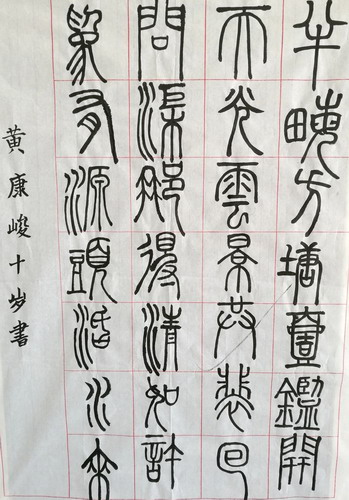 半畮方塘壹鑑開
天光雲景共裴回
問渠那得清如許
爲有源頭活水來
黄康峻十岁書